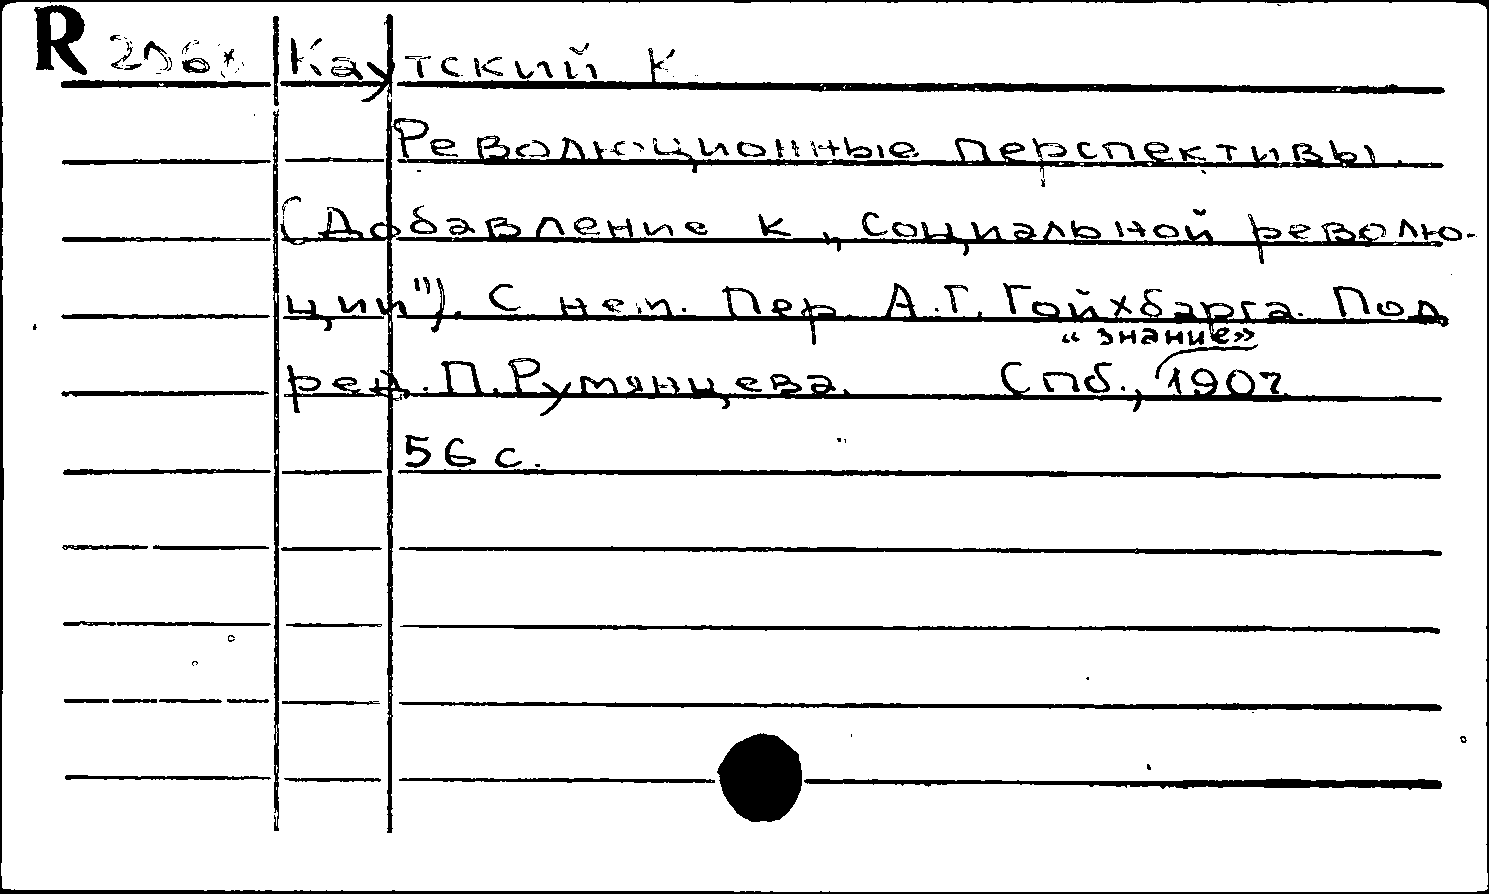 R Каутский К
Революционные перспективы.
(Добавление к „Социальной револю-
ции"). С нем. Пер. А.Г. Гойхбарга. Под
«Знание»
ред. П. Румянцева. Спб., 1907
56 с.